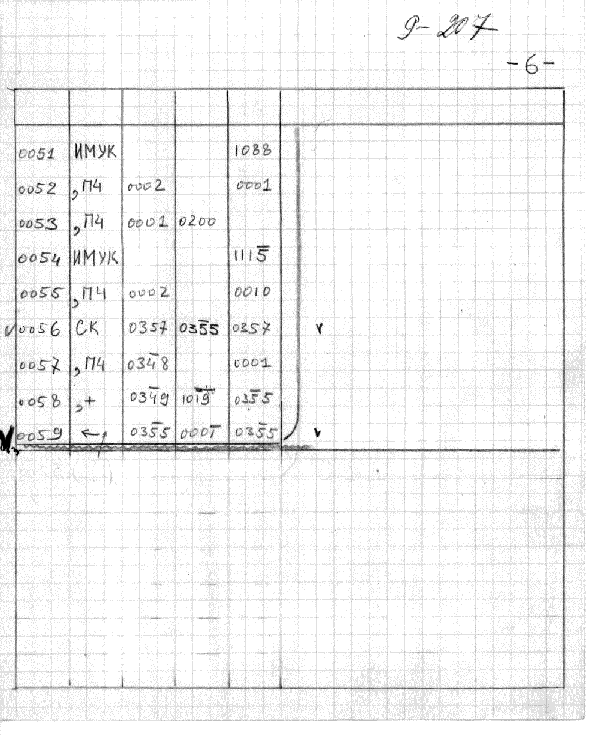 Р-207
-6-
0051 ИМУК 1088
0052 ,П4 0002 0001
0053 ,П4 0001 0200
0054 ИМУК 1115̅
0055 ,П4 0002 0010
v 0056 СК 0357 035̅5 0357 v
0057 ,П4 034̅8 0001
0058 ,+ 034̅9 101̅9̅ 035̅5
V 0059 ←, 035̅5 0001̅ 035̅5 v